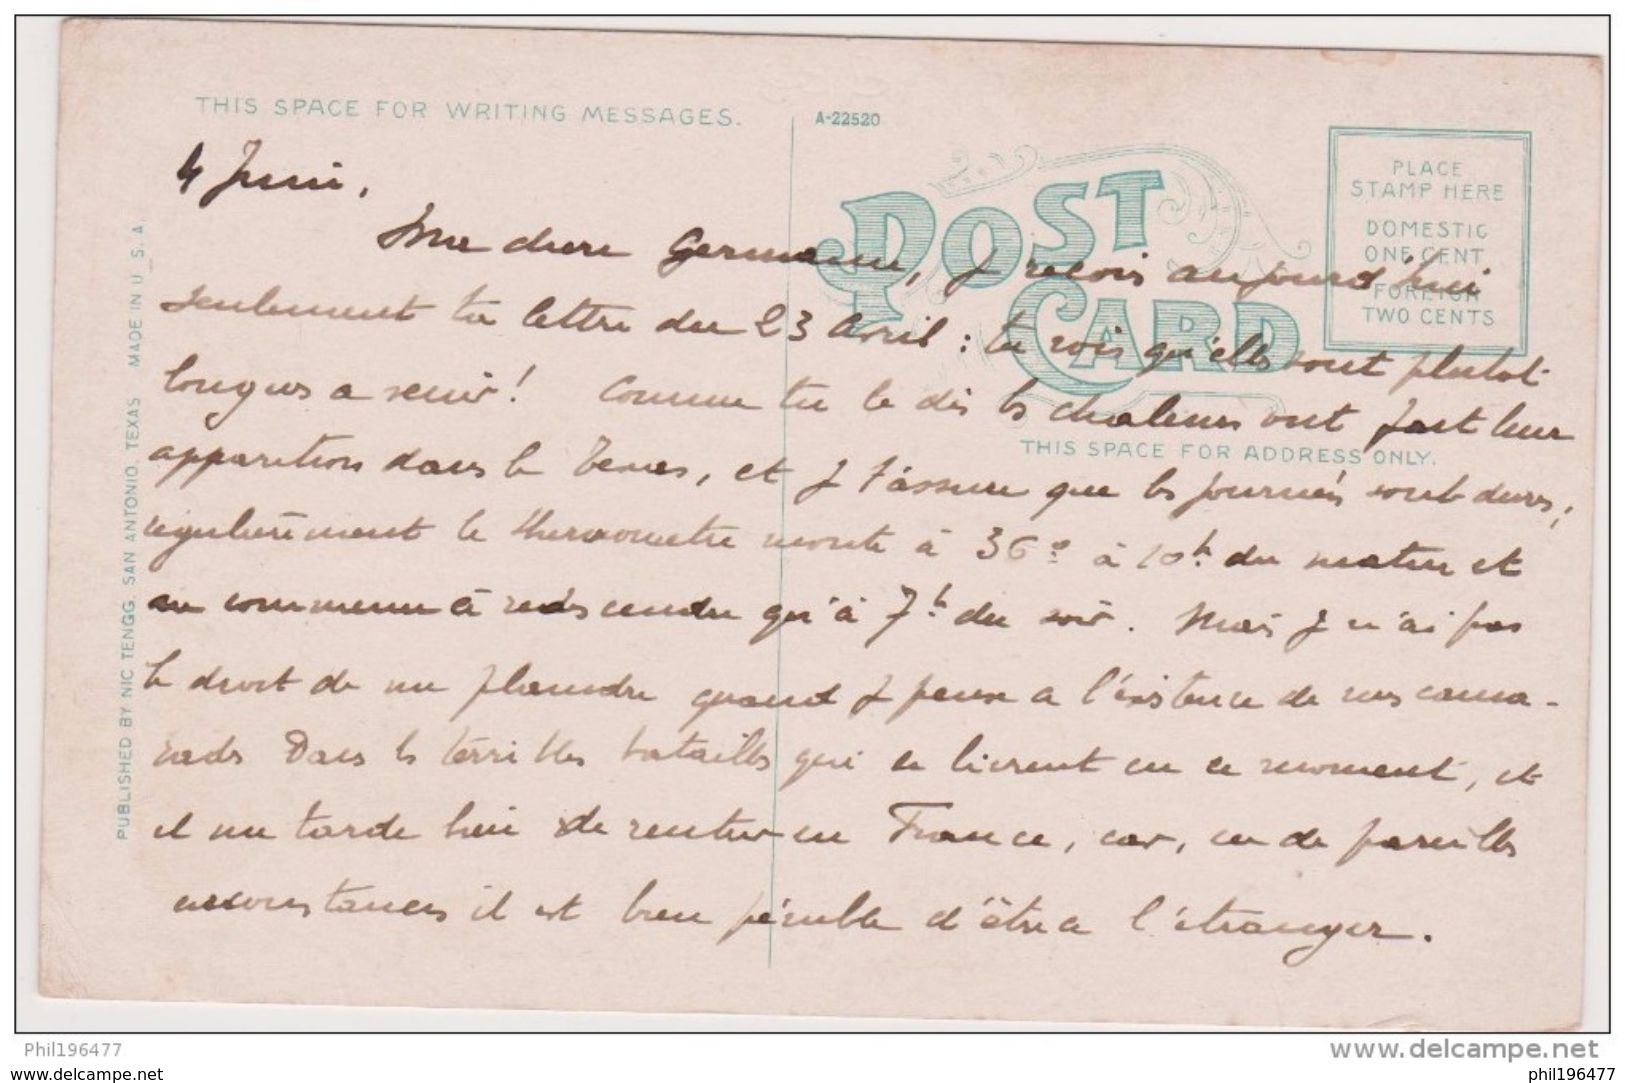 THIS SPACE FOR WRITING MESSAGES.
A-22520
POST CARD
PLACE
STAMP HERE
DOMESTIC
ONE CENT
FOREIGN
TWO CENTS
THIS SPACE FOR ADDRESS ONLY.
PUBLISHED BY NIC TENGG, SAN ANTONIO, TEXAS MADE IN U_S. A.
4 Juin,
Ma chere Germaine, je reçois aujourd'hui
seulement ta lettre du 23 Avril : tu vois qu'elles sont plutot
longues a venir ! Comme tu le dis les chaleurs ont fait leur
apparition dans le Texas, et je t'assure que les journées sont dures,
régulièrement le thermometre monte à 36° à 10h du matin et
ne commence à redescendre qu'à 7h du soir. Mais je n'ai pas
le droit de me plaindre quand je pense a l'existence de mes cama-
rades dans les terribles batailles qui se livrent en ce moment, et
il me tarde bien de rentrer en France, car, en de pareilles
circonstances il est bien pénible d'être a l'étranger.
Phil196477
www.delcampe.net
phil196477
www.delcampe.com